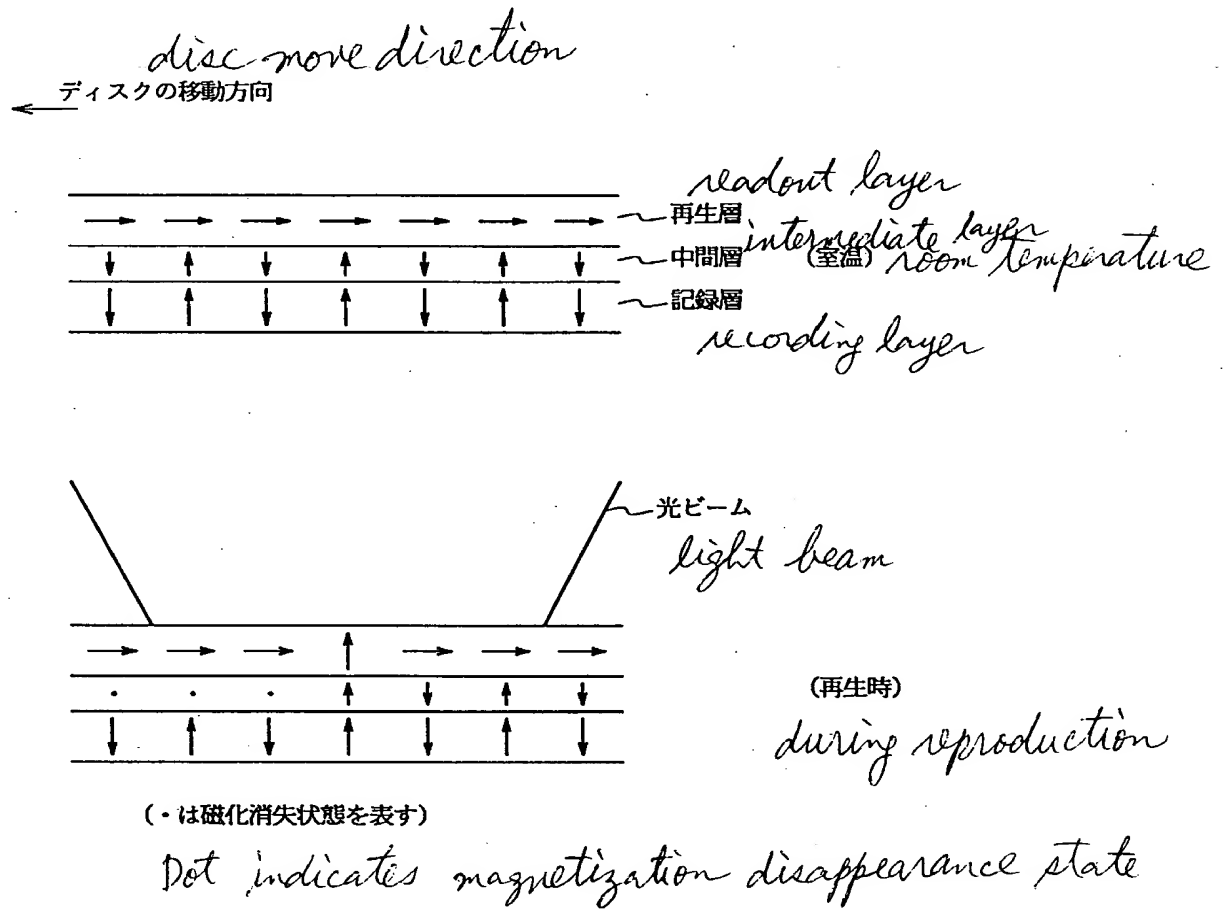 disc move direction
ディスクの移動方向
readout layer
再生層
intermediate layer
中間層 (室温) room temperature
記録層
recording layer
光ビーム
light beam
(再生時)
during reproduction
(・は磁化消失状態を表す)
Dot indicates magnetization disappearance state